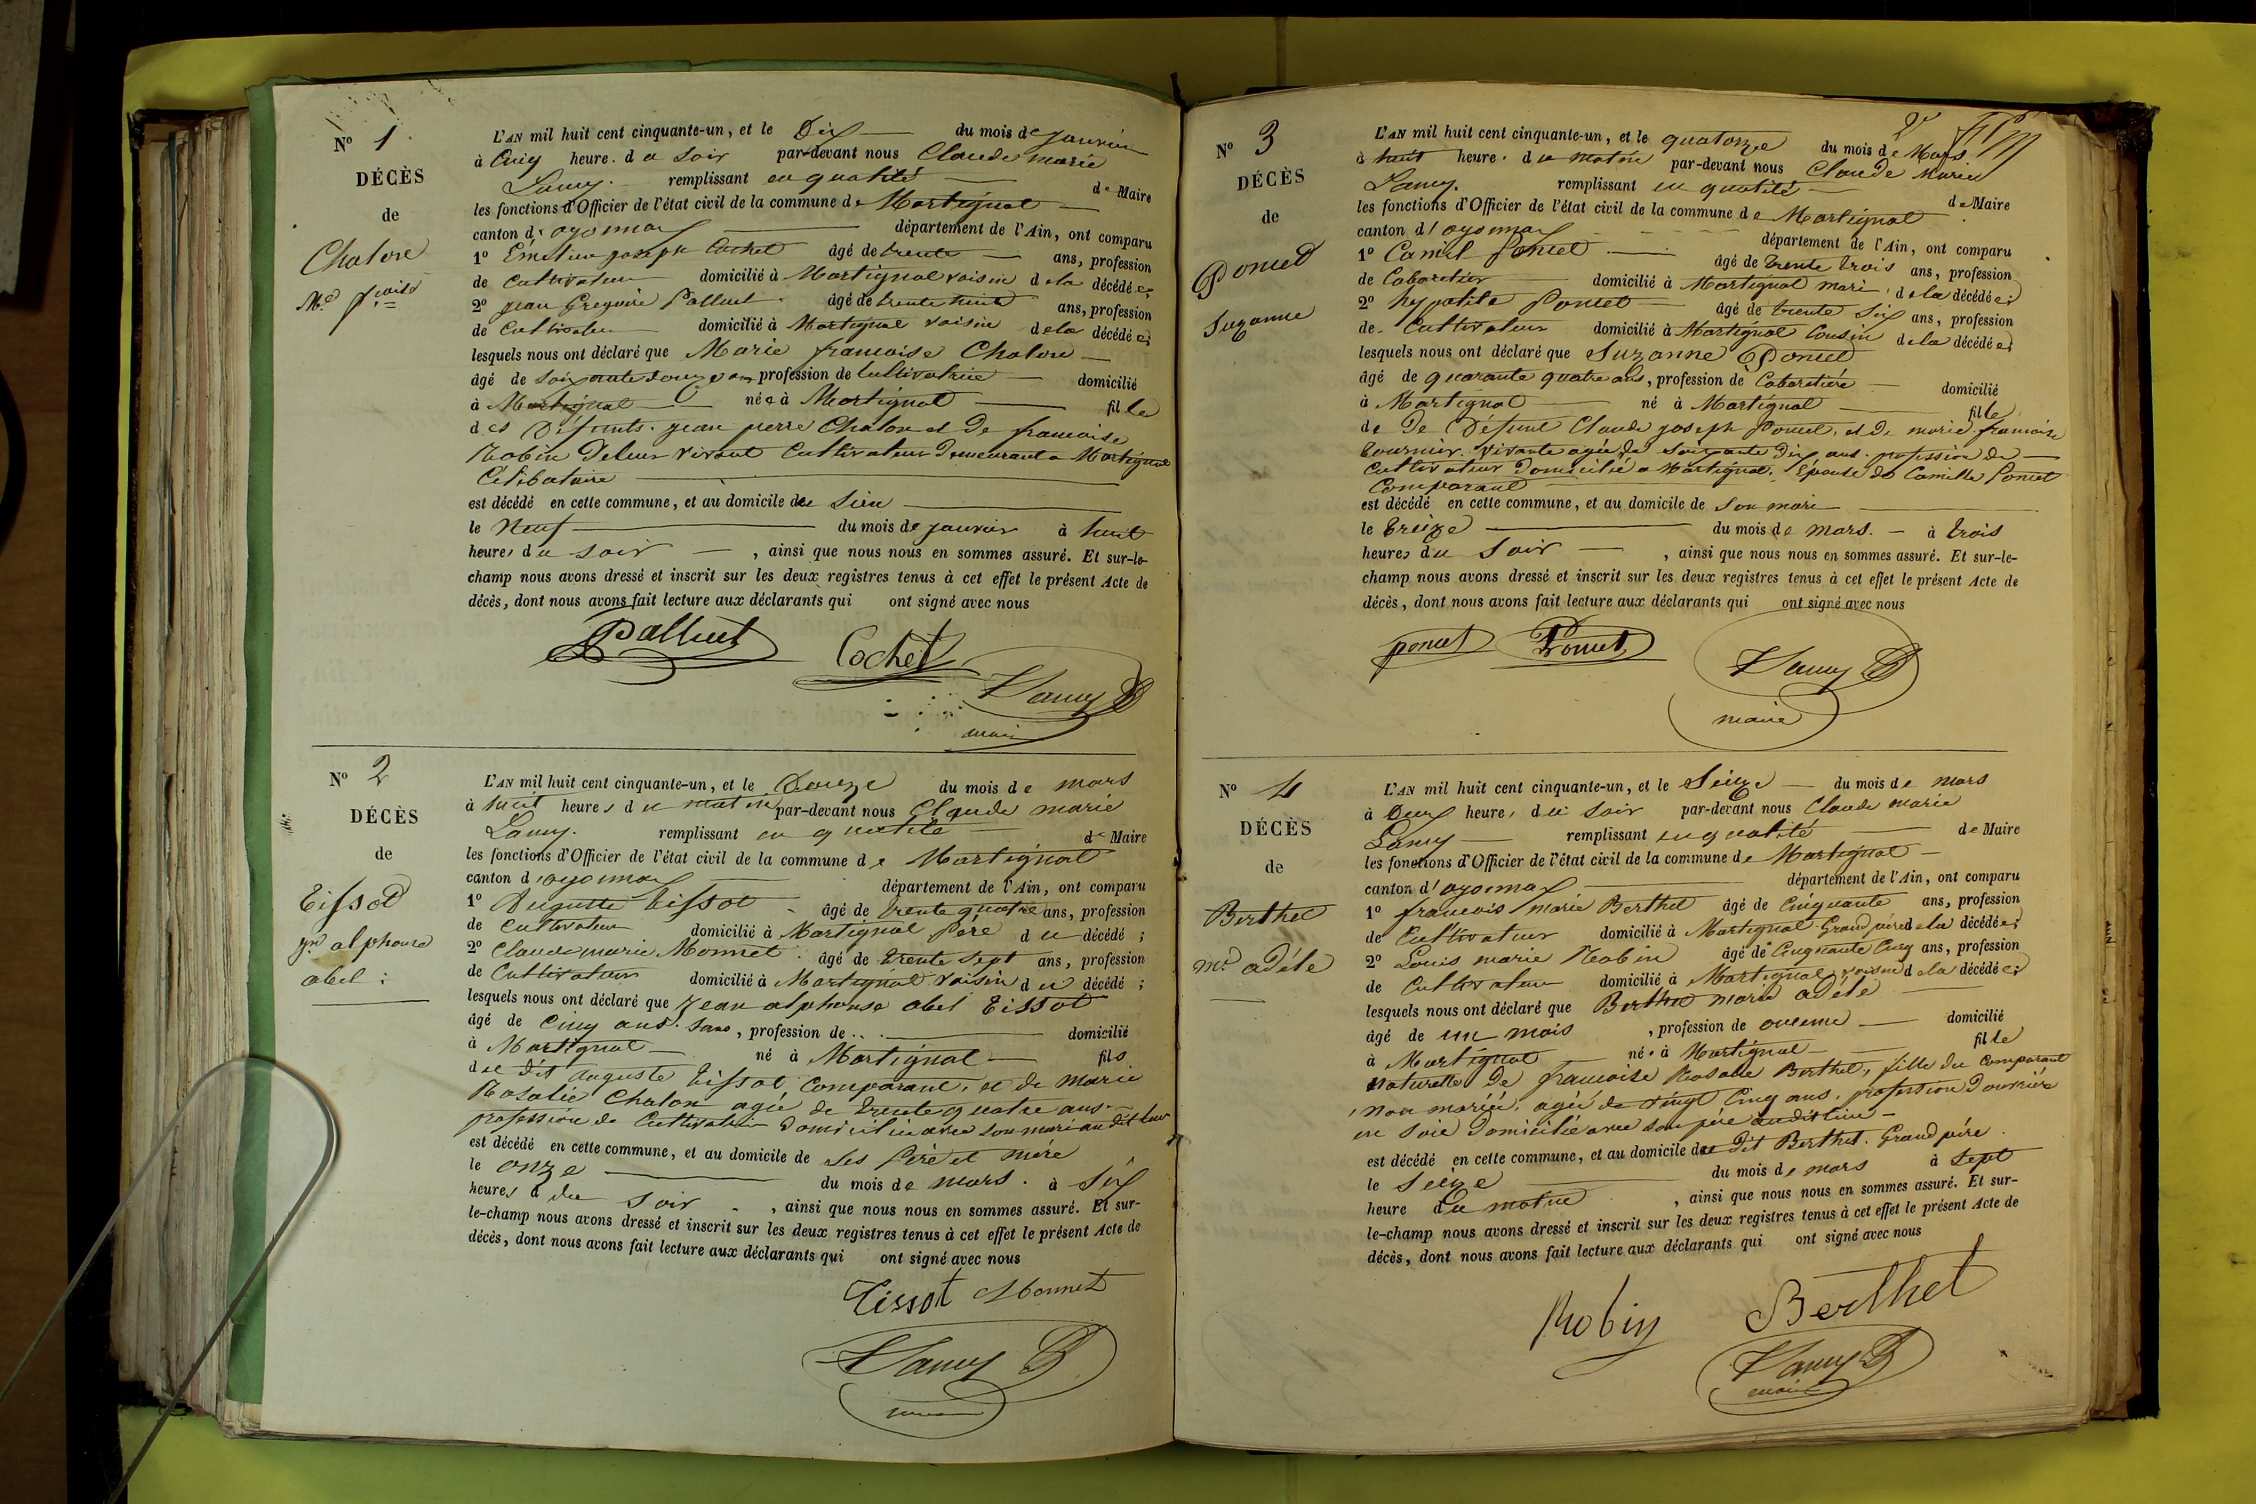 N° 1
DÉCÈS
de
Chalon
Mie fçoise
L'AN mil huit cent cinquante-un, et le Dix du mois de janvier
à Cinq heure. du soir par-devant nous Claude marie
Lamy. remplissant en qualité de Maire
les fonctions d'Officier de l'état civil de la commune de Martignat
canton d'oyonnax département de l'Ain, ont comparu
1° joseph Cochet âgé de trente ans, profession
de Cultivateur domicilié à Martignat voisin de la décédée;
2° jean Gregoire Palluet âgé de trente huit ans, profession
de Cultivateur domicilié à Martignat voisin de la décédée;
lesquels nous ont déclaré que Marie francoise Chalon
âgé de soixante douze ans profession de Cultivatrice domicilié
à Martignat née à Martignat fille
des Défunts jean pierre Chalon et De francoise
Robin De leur vivant Cultivateur Demeurant a Martignat
Célibataire
est décédé en cette commune, et au domicile du Sien
le Neuf du mois de janvier à huit
heures du soir, ainsi que nous nous en sommes assuré. Et sur-le-
champ nous avons dressé et inscrit sur les deux registres tenus à cet effet le présent Acte de
décès, dont nous avons fait lecture aux déclarants qui ont signé avec nous
Palluet Cochet Lamy
maire
N° 2
DÉCÈS
de
Tissot
jn alphonse
abel :
L'AN mil huit cent cinquante-un, et le Douze du mois de mars
à huit heures du matin par-devant nous Claude marie
Lamy. remplissant en qualité de Maire
les fonctions d'Officier de l'état civil de la commune de Martignat
canton d'oyonnax département de l'Ain, ont comparu
1° Auguste Tissot âgé de trente quatre ans, profession
de Cultivateur domicilié à Martignat Père du décédé ;
2° Claude marie Monnet. âgé de trente sept ans, profession
de Cultivateur domicilié à Martignat voisin du décédé ;
lesquels nous ont déclaré que Jean alphonse abel Tissot
âgé de Cinq ans. sans, profession de domicilié
à Martignat né à Martignat fils
du dit auguste Tissot Comparant, et de Marie
Rosalie Chalon agée de trente quatre ans.
profession de Cultivateur Domiciliée avec son mari au dit lieu
est décédé en cette commune, et au domicile de ses Père et mère
le onze du mois de mars. à Six
heures d du soir, ainsi que nous nous en sommes assuré. Et sur-
le-champ nous avons dressé et inscrit sur les deux registres tenus à cet effet le présent Acte de
décès, dont nous avons fait lecture aux déclarants qui ont signé avec nous
Tissot Monnet
Lamy
N° 3
DÉCÈS
de
Poncet
Suzanne
L'AN mil huit cent cinquante-un, et le quatorze du mois de Mars.
à huit heure. du matin par-devant nous Claude Marie
Lamy. remplissant en qualité de Maire
les fonctions d'Officier de l'état civil de la commune de Martignat
canton d'oyonnax département de l'Ain, ont comparu
1° Camil Poncet âgé de trente trois ans, profession
de Cabaretier domicilié à Martignat mari de la décédée;
2° hypolite Poncet âgé de trente six ans, profession
de Cultivateur domicilié à Martignat Cousin de la décédée;
lesquels nous ont déclaré que Suzanne Poncet
âgé de quarante quatre ans, profession de Cabaretière domicilié
à Martignat né à Martignat fille
de De Défunt Claude joseph Poncet, et De marie francoise
tournier. vivante agée de soixante dix ans. profession de
Cultivateur Domicilié a Martignat. Epouse de Camille Poncet
Comparant
est décédé en cette commune, et au domicile de son mari
le treize du mois de mars. à trois
heures du soir, ainsi que nous nous en sommes assuré. Et sur-le-
champ nous avons dressé et inscrit sur les deux registres tenus à cet effet le présent Acte de
décès, dont nous avons fait lecture aux déclarants qui ont signé avec nous
poncet Poncet Lamy
maire
N° 4
DÉCÈS
de
Berthet
mie adéle
L'AN mil huit cent cinquante-un, et le Seize du mois de mars
à Deux heures du soir par-devant nous Claude marie
Lamy remplissant en qualité de Maire
les fonctions d'Officier de l'état civil de la commune de Martignat
canton d'oyonnax département de l'Ain, ont comparu
1° francois marie Berthet âgé de Cinquante ans, profession
de Cultivateur domicilié à Martignat Grand père de la décédée;
2° Louis marie Robin âgé de Cinquante Cinq ans, profession
de Cultivateur domicilié à Martignat voisin de la décédée;
lesquels nous ont déclaré que Berthet marie adéle
âgé de un mois, profession de aucune domicilié
à Martignat née à Martignat fille
naturelle De francoise Rosalie Berthet, fille du Comparant
non mariée, agée de vingt Cinq ans, profession D'ouvrière
en soie Domiciliée avec son père audit lieu
est décédé en cette commune, et au domicile du dit Berthet. Grand père.
le seize du mois de mars à sept
heure du matin, ainsi que nous nous en sommes assuré. Et sur-
le-champ nous avons dressé et inscrit sur les deux registres tenus à cet effet le présent Acte de
décès, dont nous avons fait lecture aux déclarants qui ont signé avec nous
Robin Berthet
Lamy
maire